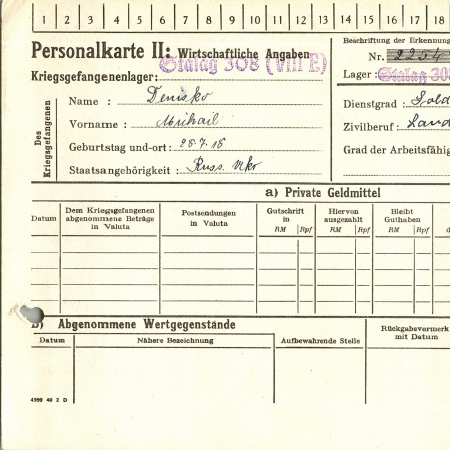 1 2 3 4 5 6 7 8 9 10 11 12 13 14 15 16 17 18
Personalkarte II: Wirtschaftliche Angaben
Beschriftung der Erkennung
Kriegsgefangenenlager: Stalag 308 (VIII E)
Nr. 2254
Lager: Stalag 308
Des Kriegsgefangenen
Name : Denisko
Dienstgrad : Sold
Vorname : Michail
Zivilberuf : Land
Geburtstag und-ort: 28.7.18
Grad der Arbeitsfähig
Staatsangehörigkeit : Russ. Ukr
a) Private Geldmittel
Datum
Dem Kriegsgefangenen
abgenommene Beträge
in Valuta
Postsendungen
in Valuta
Gutschrift
in
RM Rpf
Hiervon
ausgezahlt
RM Rpf
Bleibt
Guthaben
RM Rpf
d
b) Abgenommene Wertgegenstände
Datum
Nähere Bezeichnung
Aufbewahrende Stelle
Rückgabevermerk
mit Datum
4999 40 2 D